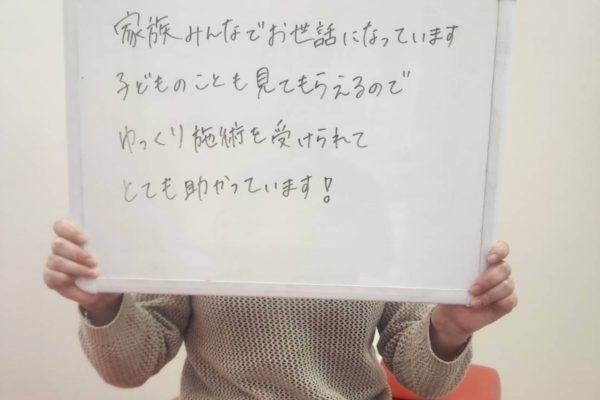 家族みんなでお世話になっています
子どものことも見てもらえるので
ゆっくり施術を受けられて
とても助かっています!